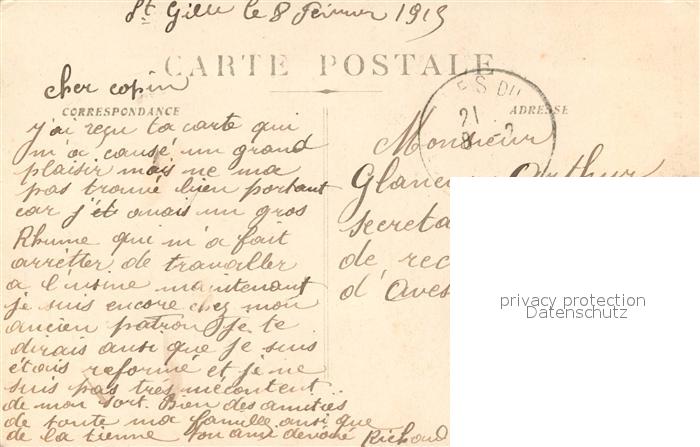 St Gilles le 8 Février 1915
CARTE POSTALE
cher copin
CORRESPONDANCE
ADRESSE
j'ai reçu ta carte qui
m'a causé un grand
plaisir mais ne ma
pas trouvé bien portant
car j'ét avais un gros
Rhume qui m'a fait
arrétter de travailler
a l'usine maintenant
je suis encore chez mon
ancien patron je te
dirais ausi que je suis
étais reformé et je ne
suis pas trés mécontent
de mon sort. Bien des amitiés
de toute ma famille ausi que
de la tienne ton ami devoué Richard
ES DU
21
8 2
Monsieur
Arthur
secreta
de rec
d'Aves
privacy protection
Datenschutz